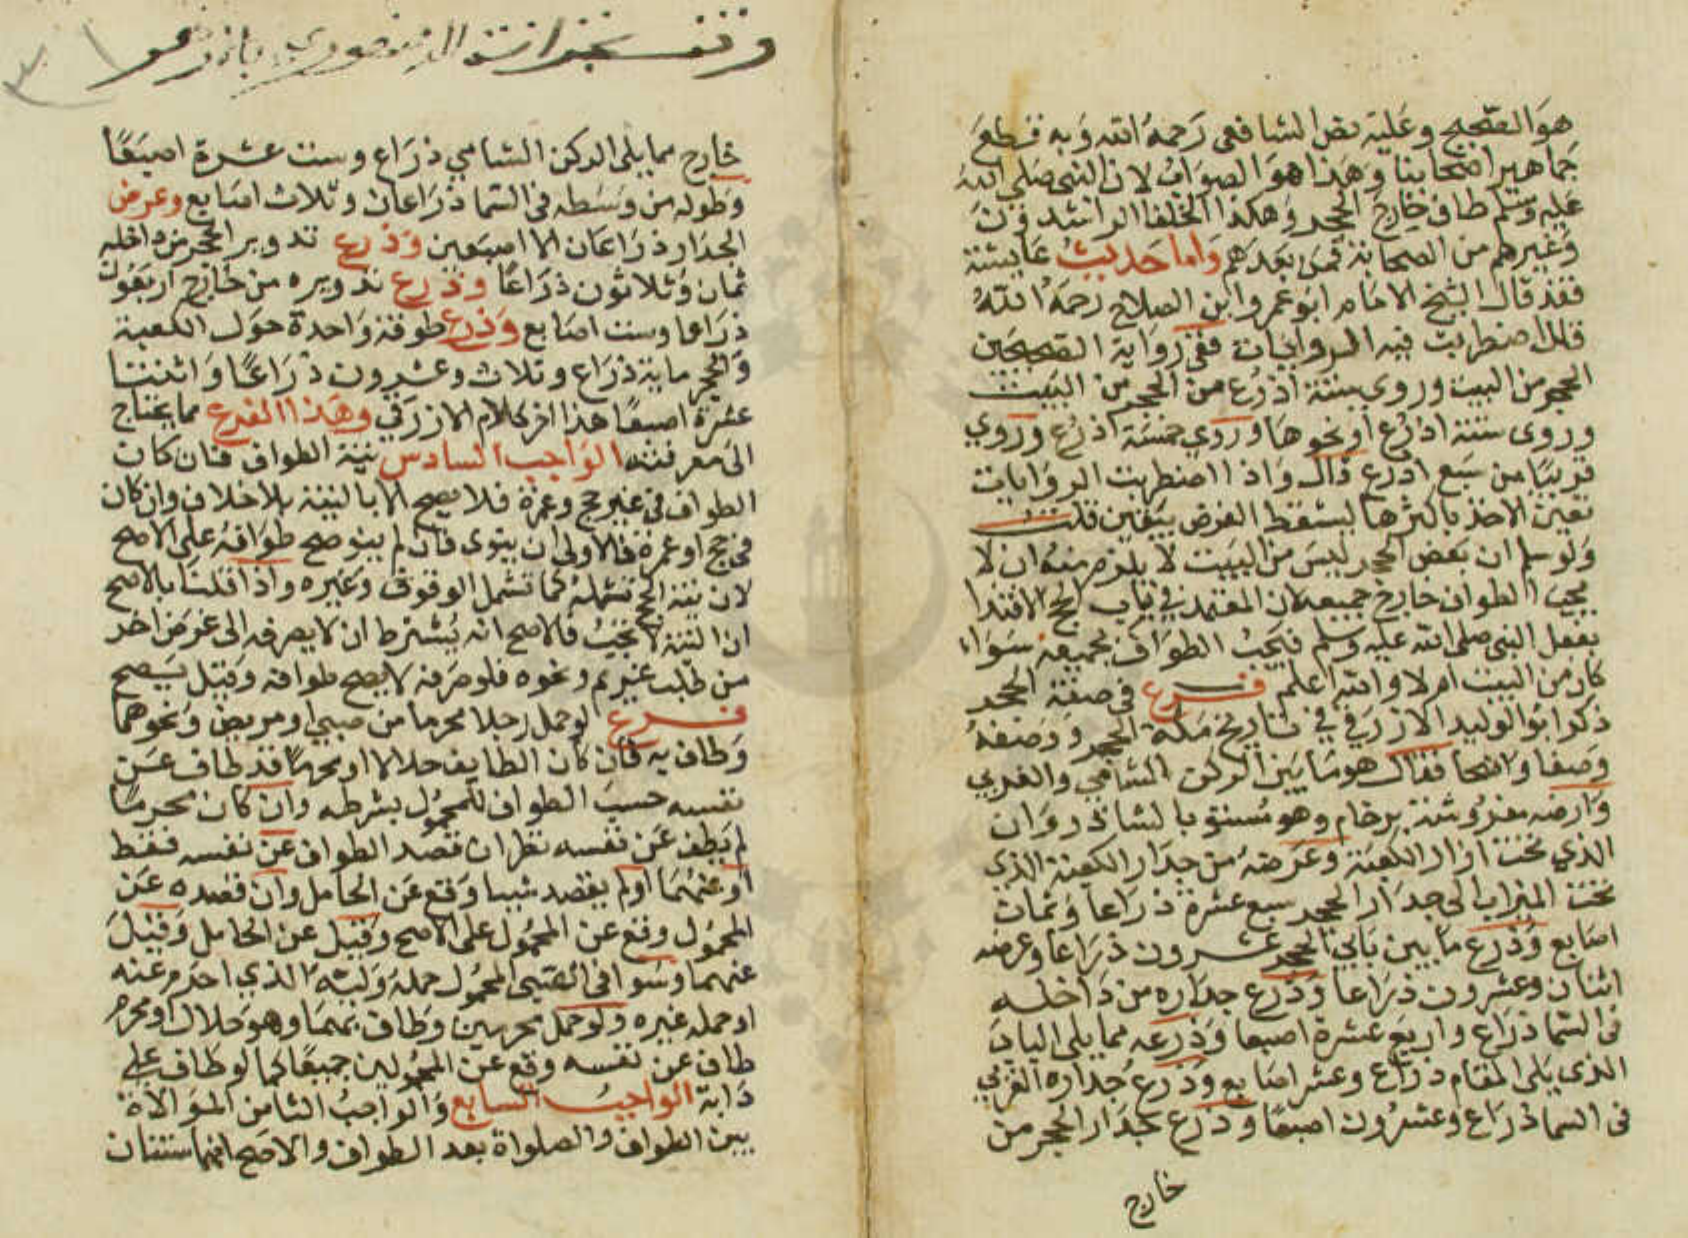 هو الصحيح وعليه نص الشافعى رحمه الله وبه قطع
جماهير اصحابنا وهذا هو الصواب لان النبى صلى الله
عليه وسلم طاف خارج الحجر وهكذا الخلفا الراشدون
وغيرهم من الصحابة فمن بعدهم واما حديث عايشة
فقد قال الشيخ الامام ابو عمرو ابن الصلاح رحمه الله
قد اضطربت فيه الروايات ففى رواية الصحيحين
الحجر من البيت وروى ستة اذرع من الحجر من البيت
وروى ستة اذرع اونحوها وروي خمسة اذرع وروي
قريبا من سبع اذرع قال واذا اضطربت الروايات
تعين الاخذ باكثرها ليسقط الفرض بيقين قلت
ولو سلم ان بعض الحجر ليس من البيت لا يلزم منه ان لا
يجب الطواف خارج جميعه لان المعتمد في باب الحج الاقتدا
بفعل النبى صلى الله عليه وسلم فيجب الطواف بجميعه سواء
كان من البيت ام لا والله اعلم فرع فى صفة الحجر
ذكر ابو الوليد الازرقي في تاريخ مكة الحجر ووصفه
وصفا واضحا فقال هو ما بين الركن الشامي والغربي
وارضه مفروشة برخام وهو مستو بالشاذروان
الذي تحت ازار الكعبة وعرضه من جدار الكعبة الذي
تحت الميزاب الى جدار الحجر سبع عشرة ذراعا وثمان
اصابع وذرع ما بين بابي الحجر عشرون ذراعا وعرضه
اثنان وعشرون ذراعا وذرع جداره من داخله
فى السما ذراع واربع عشرة اصبعا وذرعه مما يلى الباب
الذى يلى المقام ذراع وعشر اصابع وذرع جداره الغربي
فى السما ذراع وعشرون اصبعا وذرع جدار الحجر من
خارج
خارج مما يلى الركن الشامي ذراع وست عشرة اصبعا
وطوله من وسطه فى السما ذراعان وثلاث اصابع وعرض
الجدار ذراعان الا اصبعين وذرع تدوير الحجر من داخله
ثمان وثلاثون ذراعا وذرع تدويره من خارج اربعون
ذراعا وست اصابع وذرع طوفة واحدة حول الكعبة
والحجر ماية ذراع وثلاث وعشرون ذراعا واثنتا
عشرة اصبعا هذا اخر كلام الازرقي وهذا الفرع مما يحتاج
الى معرفته الواجب السادس نية الطواف فان كان
الطواف فى غير حج وعمرة فلا يصح الا بالنية بلا خلاف وان كان
فى حج او عمرة فالاولى ان ينوى فان لم ينو صح طوافه على الاصح
لان نية الحج تشمله كما تشمل الوقوف وغيره واذا قلنا بالاصح
ان النية لا تجب فالاصح انه يشترط ان لا يصرفه الى غرض اخر
من طلب غريم ونحوه فلو صرفه لا يصح طوافه وقيل يصح
فرع لو حمل رجلا محرما من صبي او مريض ونحوهما
وطاف به فان كان الطايف حلالا او محرما قد طاف عن
نفسه حسب الطواف للمحمول بشرطه وان كان محرما
لم يطف عن نفسه نظر ان قصد الطواف عن نفسه فقط
او عنهما او لم يقصد شيا وقع عن الحامل وان قصده عن
المحمول وقع عن المحمول على الاصح وقيل عن الحامل وقيل
عنهما وسوا فى الصبى المحمول حمله وليه الذي احرم عنه
او حمله غيره ولو حمل محرمين وطاف بهما وهو حلال او محرم
طاف عن نفسه وقع عن المحمولين جميعا كما لو طاف على
دابة الواجب السابع والواجب الثامن الموالاة
بين الطواف والصلواة بعد الطواف والاصح انهما سنتان